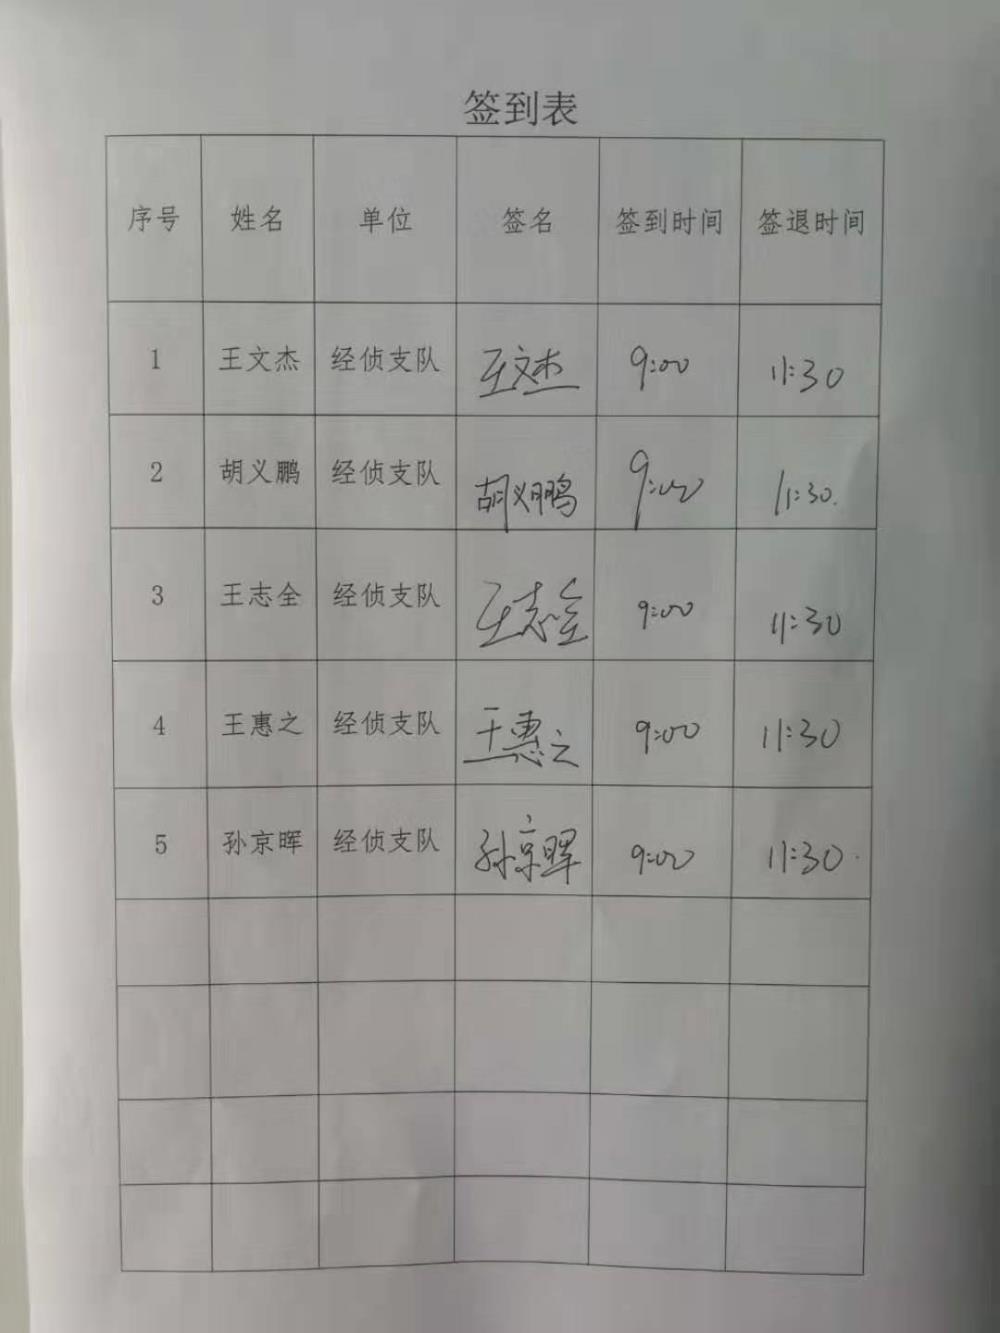 签到表
序号 姓名 单位 签名 签到时间 签退时间
1 王文杰 经侦支队 王文杰 9:00 11:30
2 胡义鹏 经侦支队 胡义鹏 9:00 11:30.
3 王志全 经侦支队 王志全 9:00 11:30
4 王惠之 经侦支队 王惠之 9:00 11:30
5 孙京晖 经侦支队 孙京晖 9:00 11:30